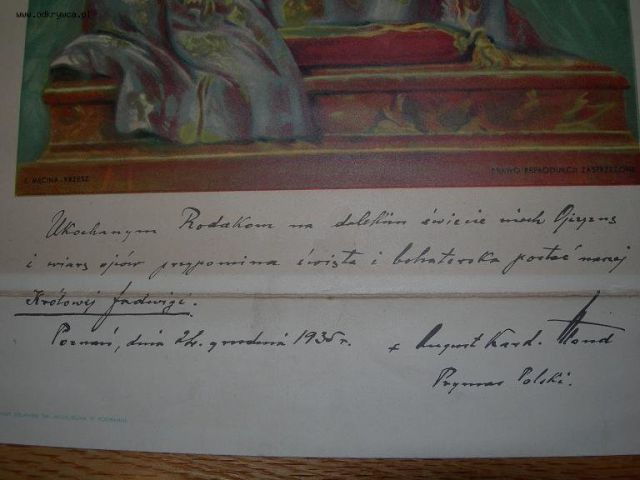 www.odkrywca.pl
J. MĘCINA-KRZESZ
PRAWO REPRODUKCJI ZASTRZEŻONE
Ukochanym Rodakom na dalekim świecie niech Ojczyznę
i wiarę ojców przypomina święta i bohaterska postać naszej
Królowej Jadwigi.
Poznań, dnia 24. grudnia 1935 r.
+ August Kard. Hlond
Prymas Polski.